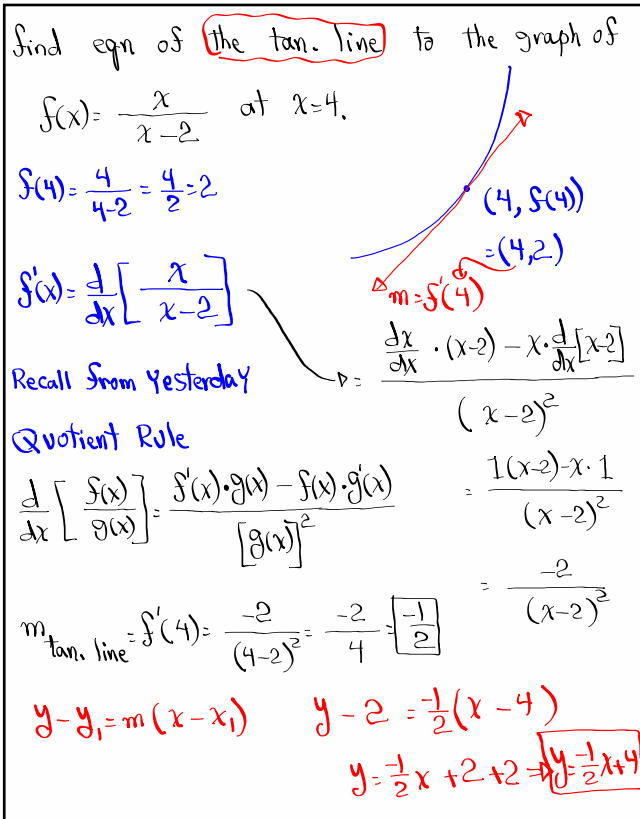 find eqn of the tan. line to the graph of
f(x) = x/(x-2) at x=4.
f(4) = 4/(4-2) = 4/2 = 2
(4, f(4))
= (4,2)
m = f'(4)
f'(x) = d/dx [x/(x-2)]
= (dx/dx · (x-2) - x · d/dx[x-2]) / (x-2)²
Recall from Yesterday
Quotient Rule
d/dx [f(x)/g(x)] = (f'(x)·g(x) - f(x)·g'(x)) / [g(x)]²
= (1(x-2)-x·1) / (x-2)²
= -2/(x-2)²
m tan. line = f'(4) = -2/(4-2)² = -2/4 = -1/2
y - y₁ = m(x - x₁)
y - 2 = -1/2 (x - 4)
y = -1/2 x + 2 + 2 ⇒ y = -1/2 x + 4